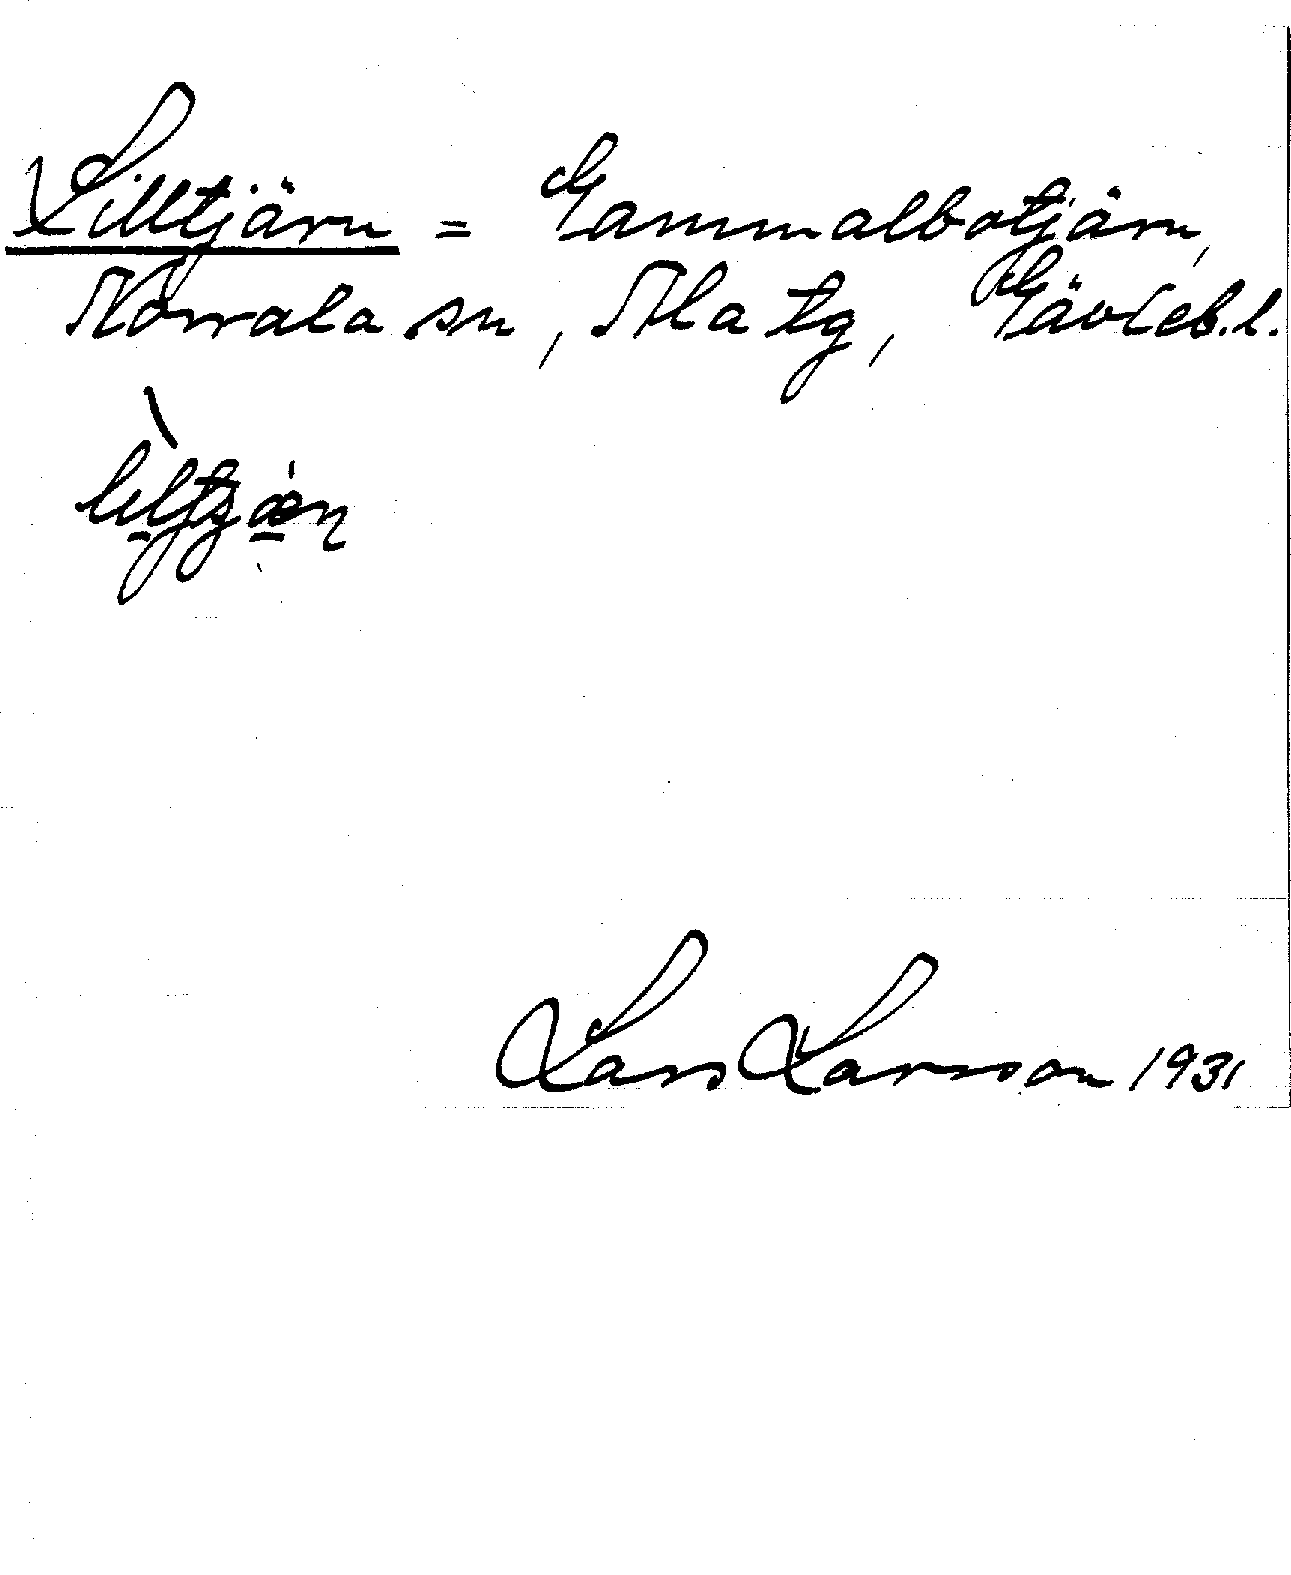 Lilltjärn = Gammalbotjärn,
Norrala sn, Ala tg, Gävleb.l.
Lars Larsson 1931